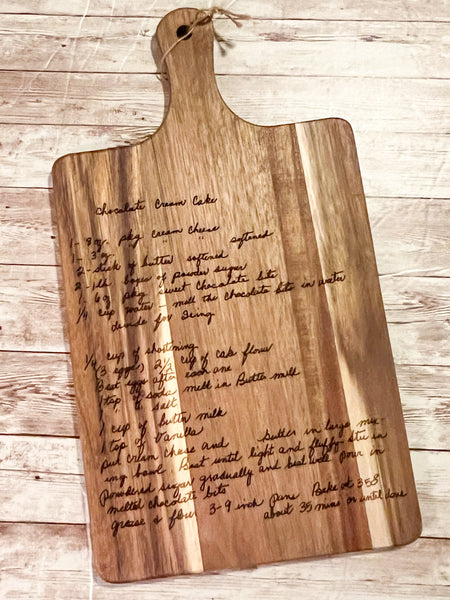 Chocolate Cream Cake
1 - 8 oz. pkg cream cheese
1 - 3 oz " " " softened
2 - stick of butter softened
2 - lb. boxes of powder sugar
1 6 oz pkg sweet chocolate bits
1/4 cup water melt the chocolate bits in water
divide for Icing
1/4 cup of shortning
(3 eggs) 2 1/2 cup of cake flour
Beat eggs after each one
1 tsp of soda melt in Butter milk
1 " to salt
1 cup of butter milk
1 tsp of vanilla
put cream cheese and butter in large mix
ing bowl. Beat until light and fluffy stir in
powdered sugar gradually and beat well pour in
melted chocolate bits
grease & flour 3-9 inch pans Bake at 350
about 35 mins or until done